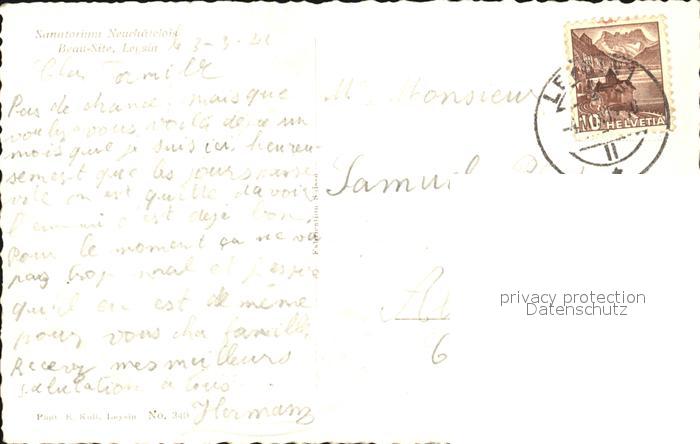 Sanatorium Neuchâtelois
Beau-Site, Leysin 3-3-41
Pas de chance, mais que
voulez-vous voilà déjà un
mois que je suis ici, heureu-
sement que les jours passe
vite on est quitte d'avoir
l'ennui c'est déjà bon.
Pour le moment ça ne va
pas trop mal et j'espère
qu'il en est de même
pour vous cher famille.
Recevez mes meilleurs
salutation a tous
Hermann
Phot. E. Kull, Leysin No. 340
Monsieur
Samuel
6
10 HELVETIA
privacy protection
Datenschutz